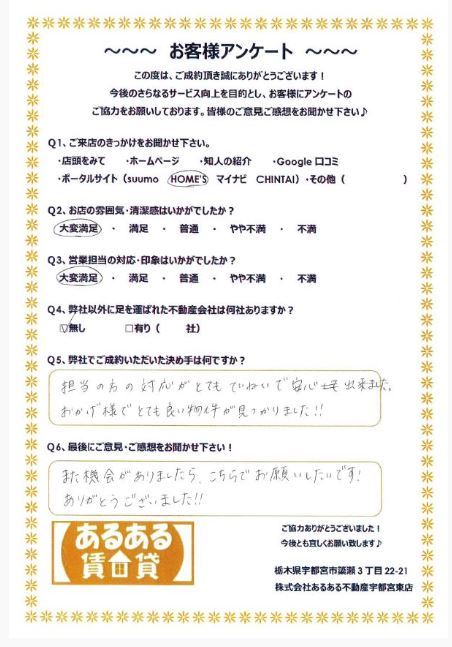 ～～～ お客様アンケート ～～～
この度は、ご成約頂き誠にありがとうございます！
今後のさらなるサービス向上を目的とし、お客様にアンケートの
ご協力をお願いしております。皆様のご意見ご感想をお聞かせ下さい♪
Q1、ご来店のきっかけをお聞かせ下さい。
・店頭をみて ・ホームページ ・知人の紹介 ・Google 口コミ
・ポータルサイト（suumo HOME'S マイナビ CHINTAI）・その他（ ）
Q2、お店の雰囲気・清潔感はいかがでしたか？
大変満足 ・ 満足 ・ 普通 ・ やや不満 ・ 不満
Q3、営業担当の対応・印象はいかがでしたか？
大変満足 ・ 満足 ・ 普通 ・ やや不満 ・ 不満
Q4、弊社以外に足を運ばれた不動産会社は何社ありますか？
☑無し □有り（ 社）
Q5、弊社でご成約いただいた決め手は何ですか？
担当の方の対応がとてもていねいで安心出来ました。
おかげ様でとても良い物件が見つかりました!!
Q6、最後にご意見・ご感想をお聞かせ下さい！
また機会がありましたら、こちらでお願いしたいです！
ありがとうございました!!
あるある
賃貸
ご協力ありがとうございました！
今後とも宜しくお願い致します♪
栃木県宇都宮市簗瀬３丁目 22-21
株式会社あるある不動産宇都宮東店